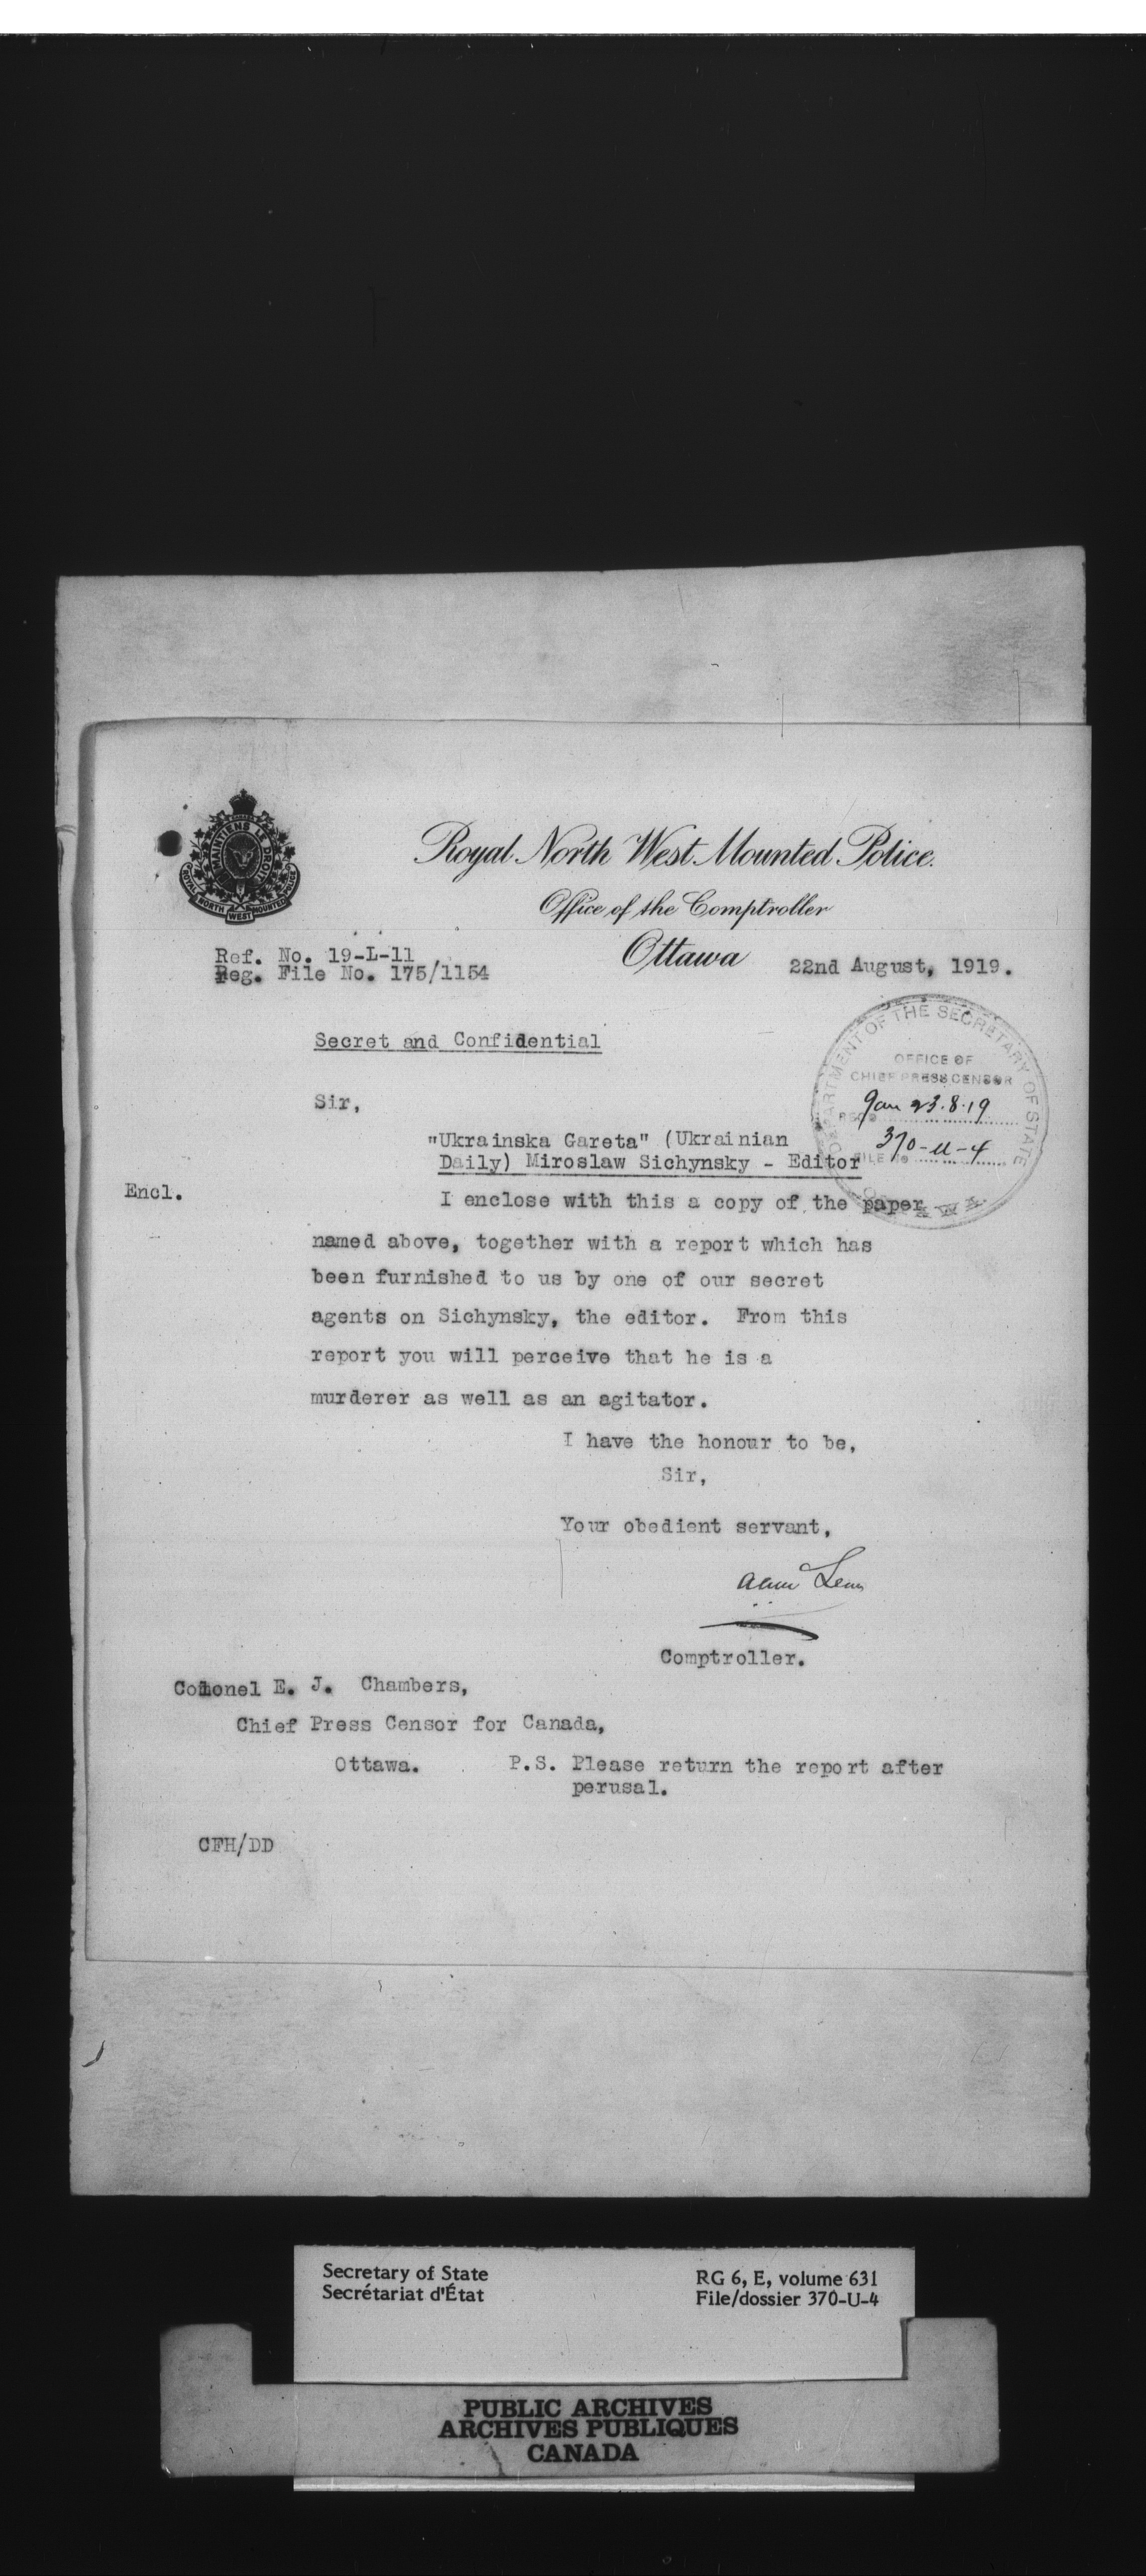 MAINTIENS LE DROIT
ROYAL NORTH WEST MOUNTED POLICE
Royal North West Mounted Police.
Office of the Comptroller
Ottawa 22nd August, 1919.
Ref. No. 19-L-11
Reg. File No. 175/1154
DEPARTMENT OF THE SECRETARY OF STATE
OFFICE OF
CHIEF PRESS CENSOR
23.8.19
FILE No 370-U-4
Secret and Confidential
Sir,
"Ukrainska Gareta" (Ukrainian
Daily) Miroslaw Sichynsky - Editor
Encl.
I enclose with this a copy of the paper
named above, together with a report which has
been furnished to us by one of our secret
agents on Sichynsky, the editor. From this
report you will perceive that he is a
murderer as well as an agitator.
I have the honour to be,
Sir,
Your obedient servant,
Comptroller.
Colonel E. J. Chambers,
Chief Press Censor for Canada,
Ottawa.
P.S. Please return the report after
perusal.
CFH/DD
Secretary of State
Secrétariat d'État
RG 6, E, volume 631
File/dossier 370-U-4
PUBLIC ARCHIVES
ARCHIVES PUBLIQUES
CANADA